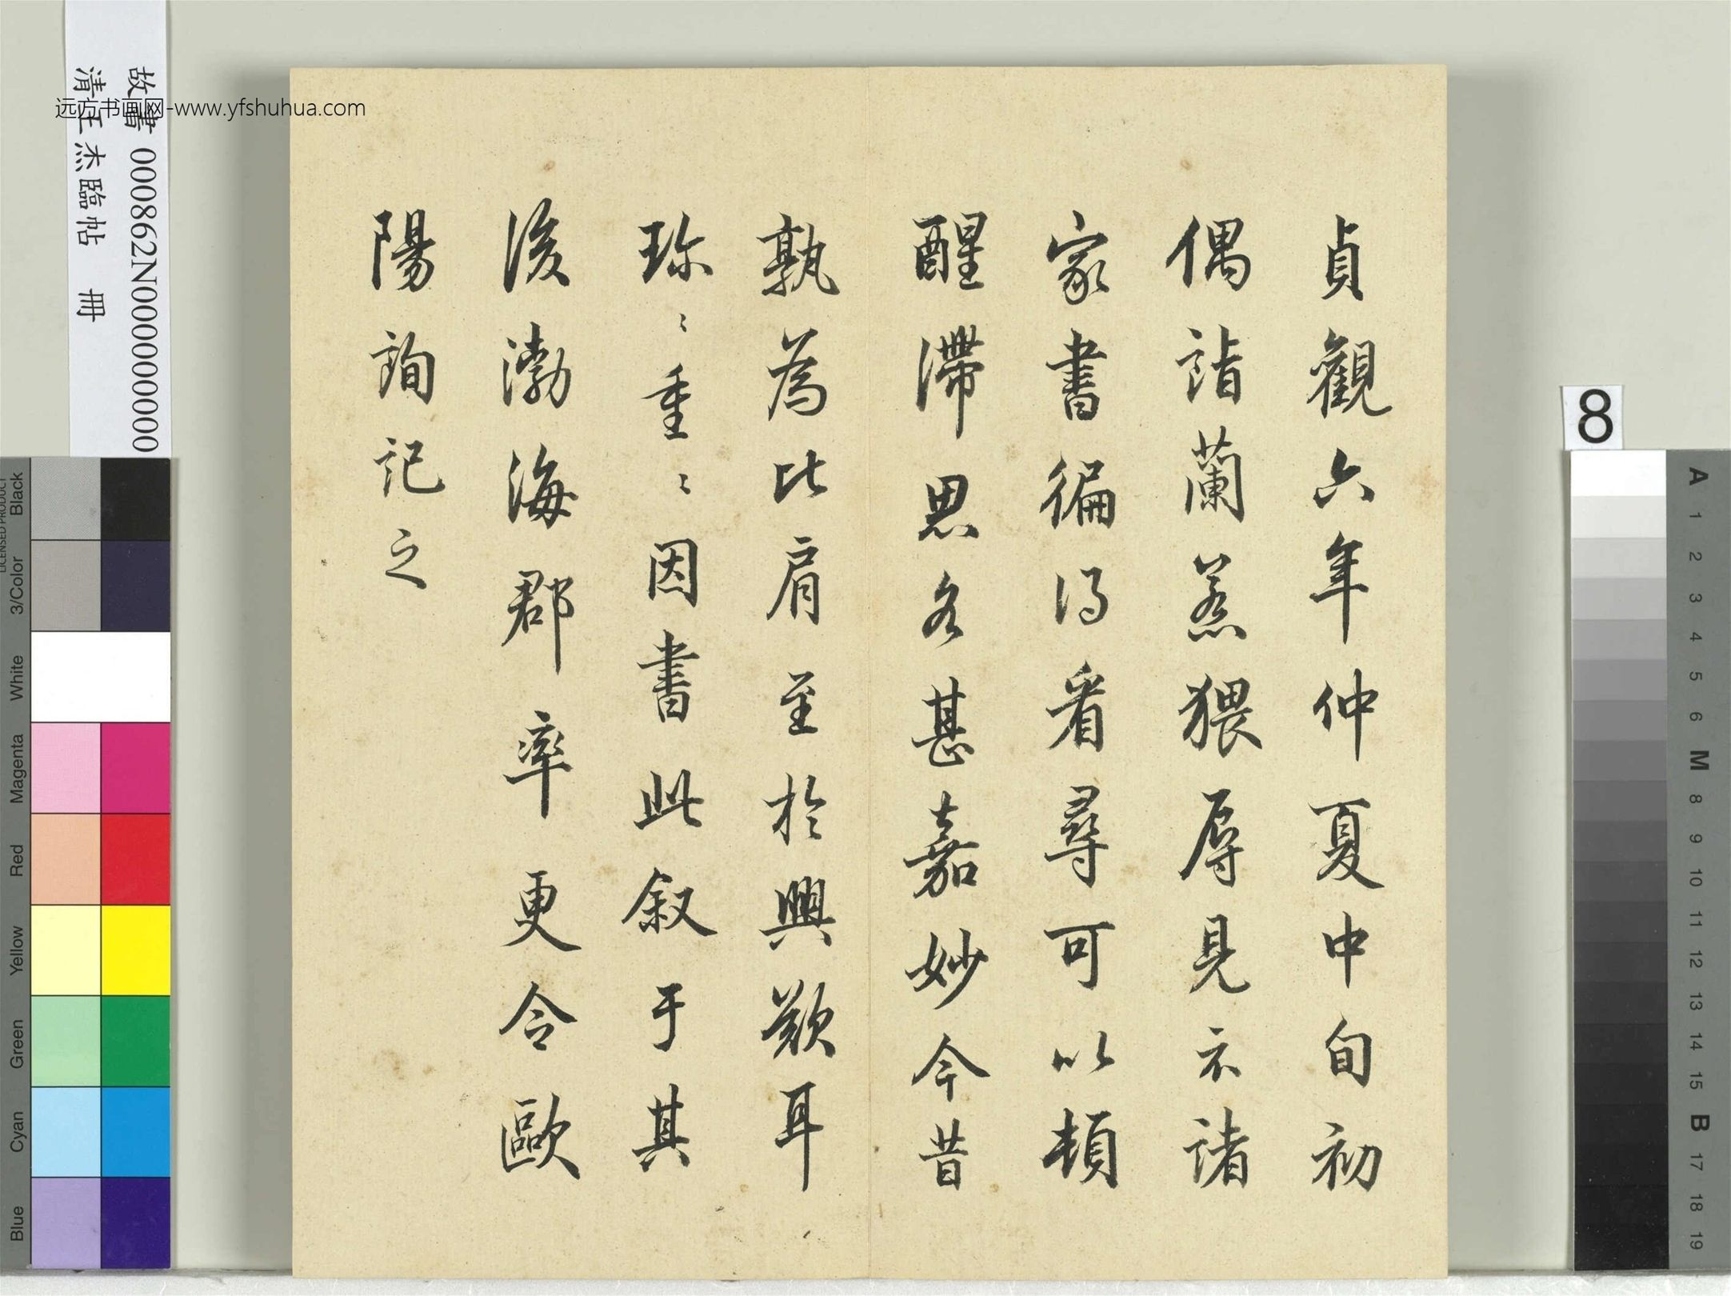 貞觀六年仲夏中旬初
偶詣蘭若猥辱見示諸
家書徧得看尋可以頓
醒滯思名甚嘉妙今昔
孰為比肩至於興歎耳
珍〻重〻因書此叙于其
後渤海郡率更令歐
陽詢記之
故書 000862N000000000
清王杰臨帖 冊
远方书画网-www.yfshuhua.com
8
A 1 2 3 4 5 6 M 8 9 10 11 12 13 14 15 B 17 18 19
Black
3/Color
White
Magenta
Red
Yellow
Green
Cyan
Blue
LICENSED PRODUCT